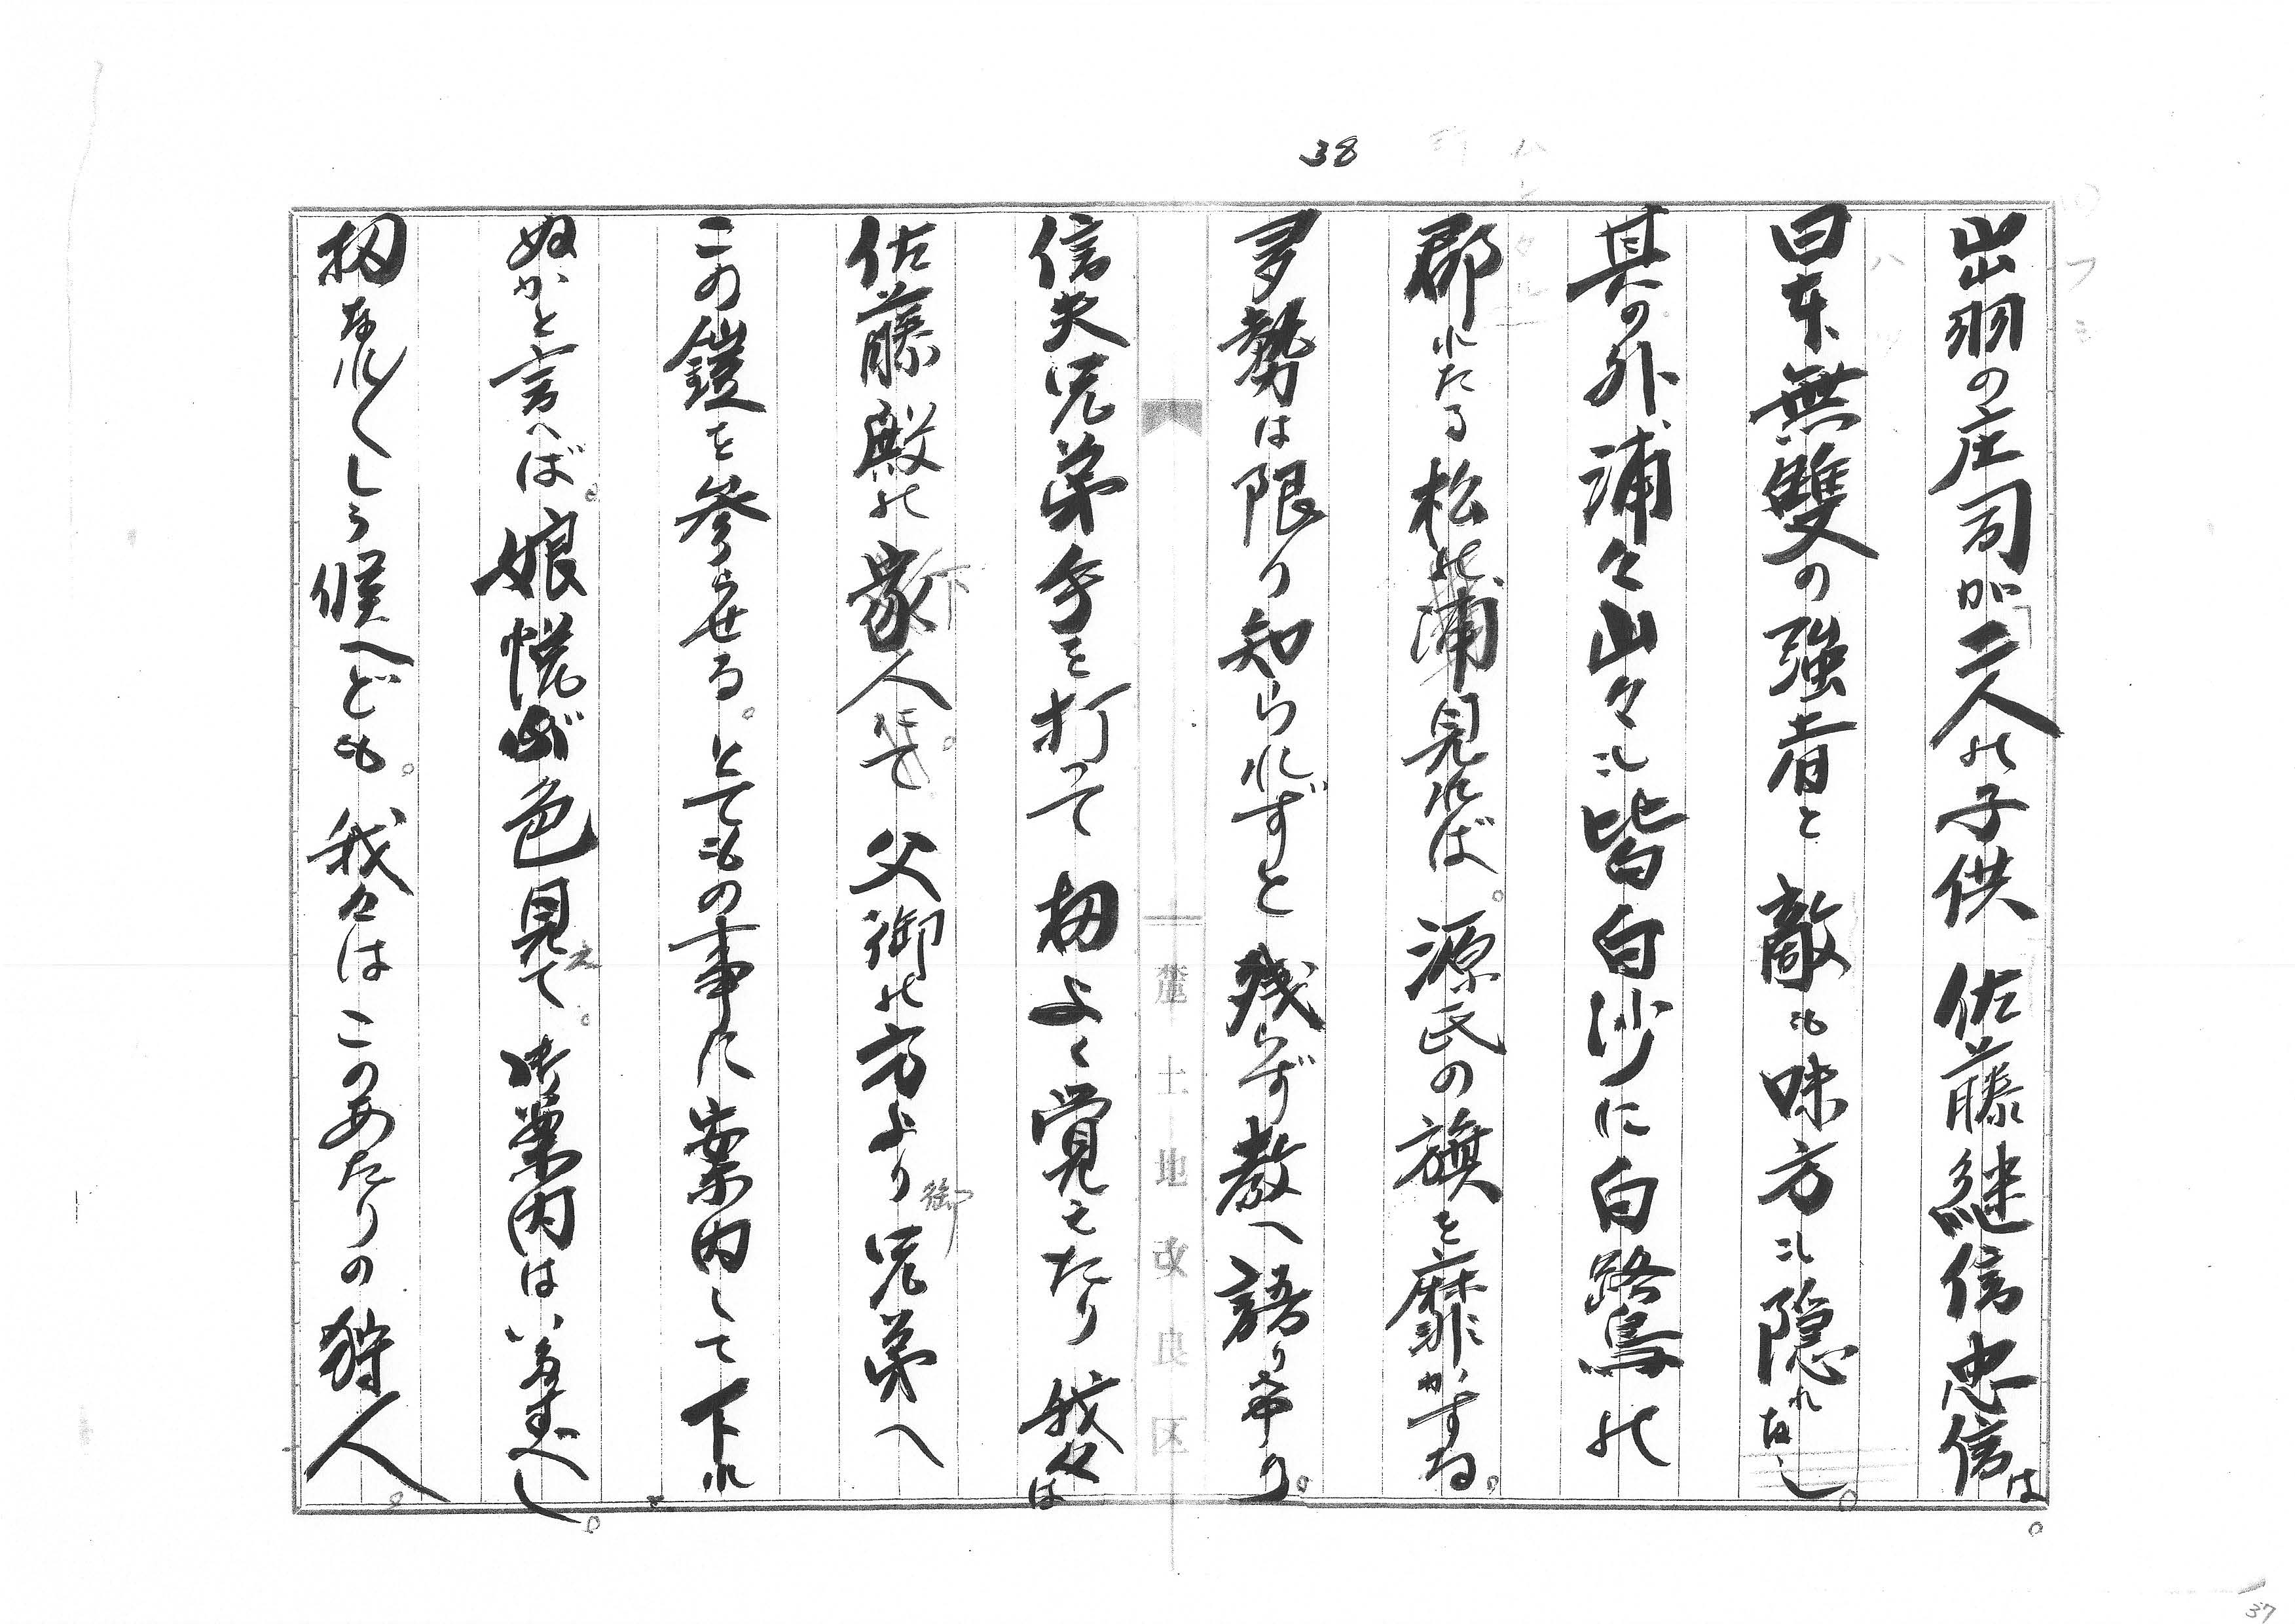 38
出羽の庄司が二人の子供 佐藤継信忠信は。
日本無雙の強者と 敵も味方も隠れなし。
其の外浦々山々も皆白沙に白路鳥の
郡れたる松の浦見れば。源氏の旗を靡かする。
多勢は限り知られずと 残らず教へ語り
信夫兄弟手を打って 扨よく覚えたり 我々は
佐藤殿の家人にて 父御の方より兄弟へ
御
この鎧を参らせる。とてもの事に案内して下れ
ぬかと言へば。娘慌
色見て。御案内はいたすべし。
え
扨なれなれしう候へども。我々はこのあたりの狩人。
37